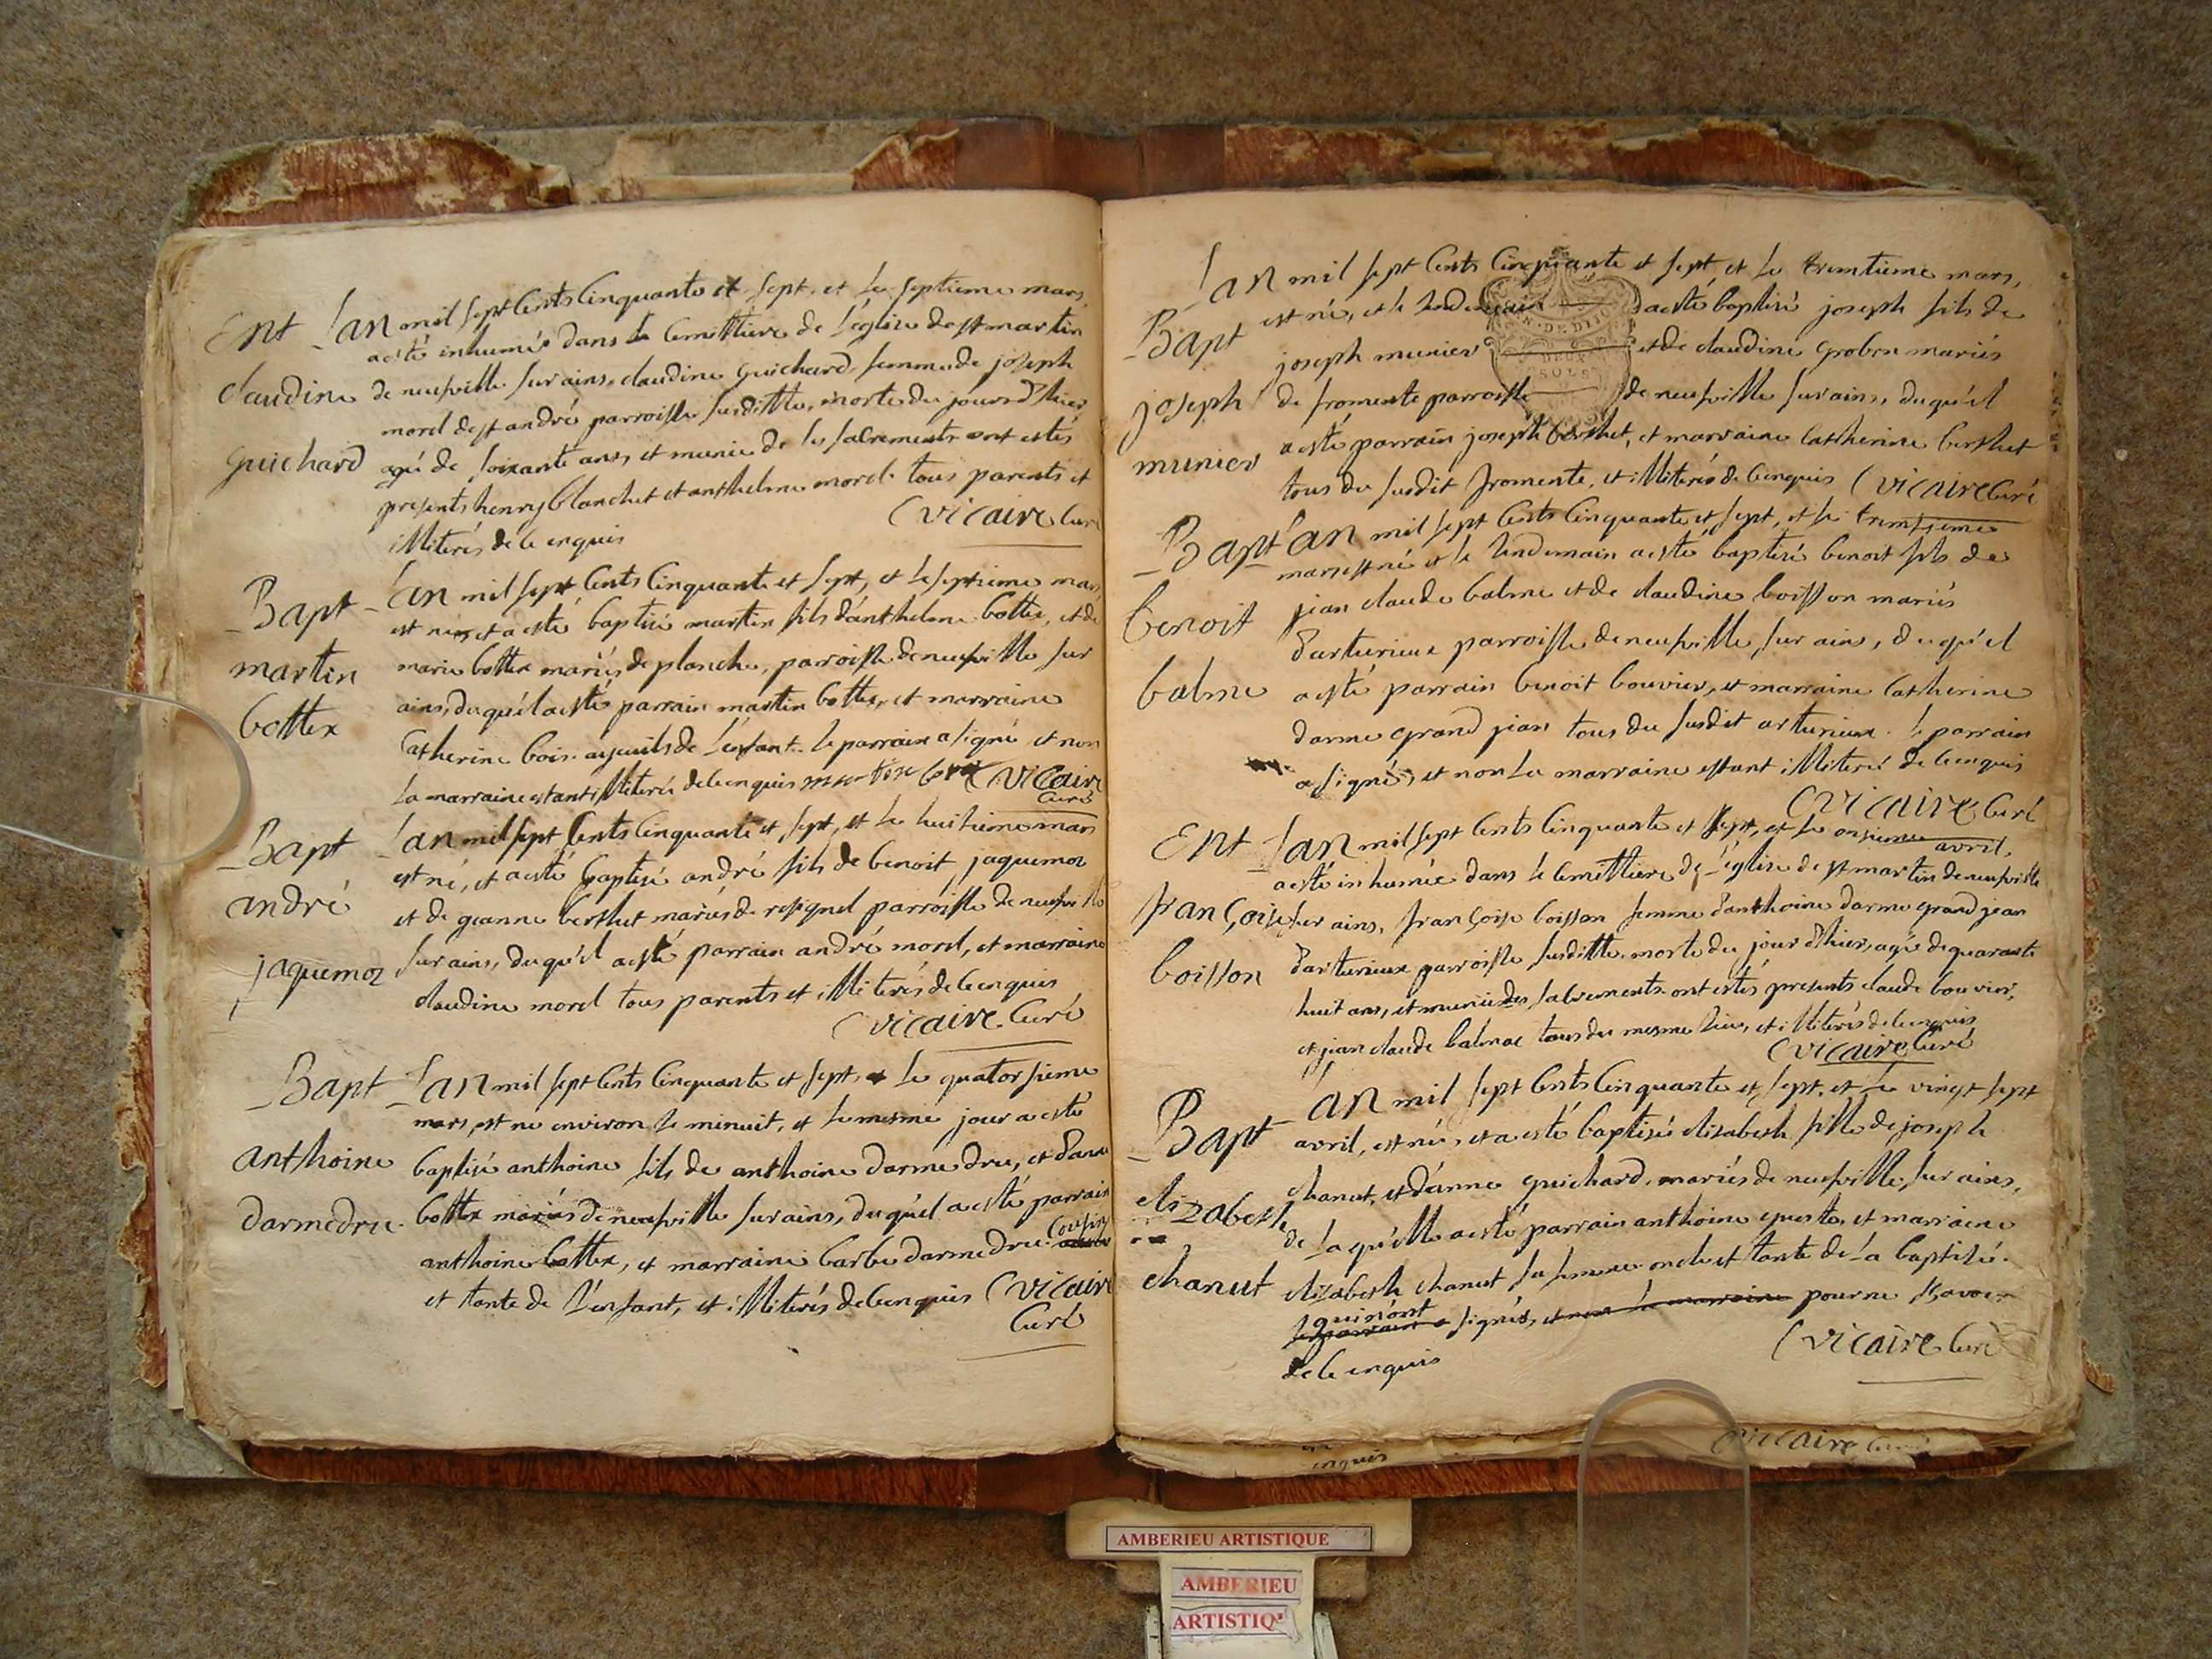 Ent
Claudine
Guichard
Lan mil sept Cents Cinquante et sept, et le septieme mars
a esté inhumée dans le Cemittiere de l'église de st martin
de neufville sur ains, claudine Guichard femme de joseph
morel de st andré parroisse susditte, morte du jour d'hier
agé de soixante ans, et munie de ses sacrements ont estés
presents henry blanchet et anthelme morel tous parents et
illiterés de ce enquis
Vicaire Curé
Bapt
martin
bottex
Lan mil sept Cents Cinquante et sept, et le septieme mars
est né, et a esté baptisé martin fils d'anthelme bottex, et de
marie bottex mariés de planche, parroisse de neufville sur
ains, duqu'el a esté parrain martin bottex, et marraine
Catherine bois ayeuils de l'enfant le parrain a signé et non
la marraine estant illiteré de ce enquis Vicaire
Curé
Bapt
andré
jaquemoz
Lan mil sept Cents Cinquante et sept, et le huitieme mars
est né, et a esté baptisé andré fils de benoit jaquemoz
et de jeanne berthet mariés de resignel parroisse de neufville
sur ains, duqu'el a esté parrain andré morel, et marraine
claudine morel tous parents et illiterés de ce enquis
Vicaire Curé
Bapt
anthoine
darmedru
Lan mil sept Cents Cinquante et sept, et le quatorsieme
mars, est né environ le minuit, et le mesme jour a esté
baptisé anthoine fils de anthoine darmedru, et d'anne
bottex mariés de neufville sur ains, duqu'el a esté parrain
anthoine bottex, et marraine barbe darmedru Cousin
et tante de l'enfant, et illiterés de ce enquis Vicaire
Curé
Lan mil sept Cents Cinquante et sept, et le trentieme mars,
Bapt
joseph
munier
est né, et le lendemain a esté baptisé joseph fils de
joseph munier et de claudine groben mariés
de fromente parroisse de neufville sur ains, duqu'el
a esté parrain joseph berthet, et marraine Catherine berthet
tous du susdit fromente, et illiterés de ce enquis Vicaire Curé
Bapt
benoit
balme
Lan mil sept Cents Cinquante et sept, et le trentieme
mars est né et le lendemain a esté baptisé benoit fils de
jean claude balme et de claudine boisson mariés
d'arturieux parroisse de neufville sur ains, duqu'el
a esté parrain benoit bouvier, et marraine Catherine
darme grand jean tous du susdit arturieux le parrain
a signé, et non la marraine estant illiteré de ce enquis
Vicaire Curé
Ent
françoise
boisson
Lan mil sept Cents Cinquante et sept, et le onzieme avril,
a esté inhumée dans le Cemittiere de l'église de st martin de neufville
sur ains, françoise boisson femme d'anthoine darme grand jean
d'arturieux parroisse susditte, morte du jour d'hier, agée de quarante
huit ans, et munie des sacrements ont estés presents claude bouvier,
et jean claude balme tous du mesme lieu, et illiterés de ce enquis
Vicaire Curé
Bapt
elizabeth
chanut
Lan mil sept Cents Cinquante et sept, et le vingt sept
avril, est née, et a esté baptisée elisabeth fille de joseph
chanut, et d'anne guichard, mariés de neufville sur ains,
de laqu'elle a esté parrain anthoine et marraine
elisabeth chanut sa femme oncle et tante de la baptisé.
qui n'ont
le parrain a signés, et non la marraine pour ne sçavoir
de ce enquis
Vicaire Curé
enquis
Vicaire Curé
AMBERIEU ARTISTIQUE
AMBERIEU
ARTISTIQ